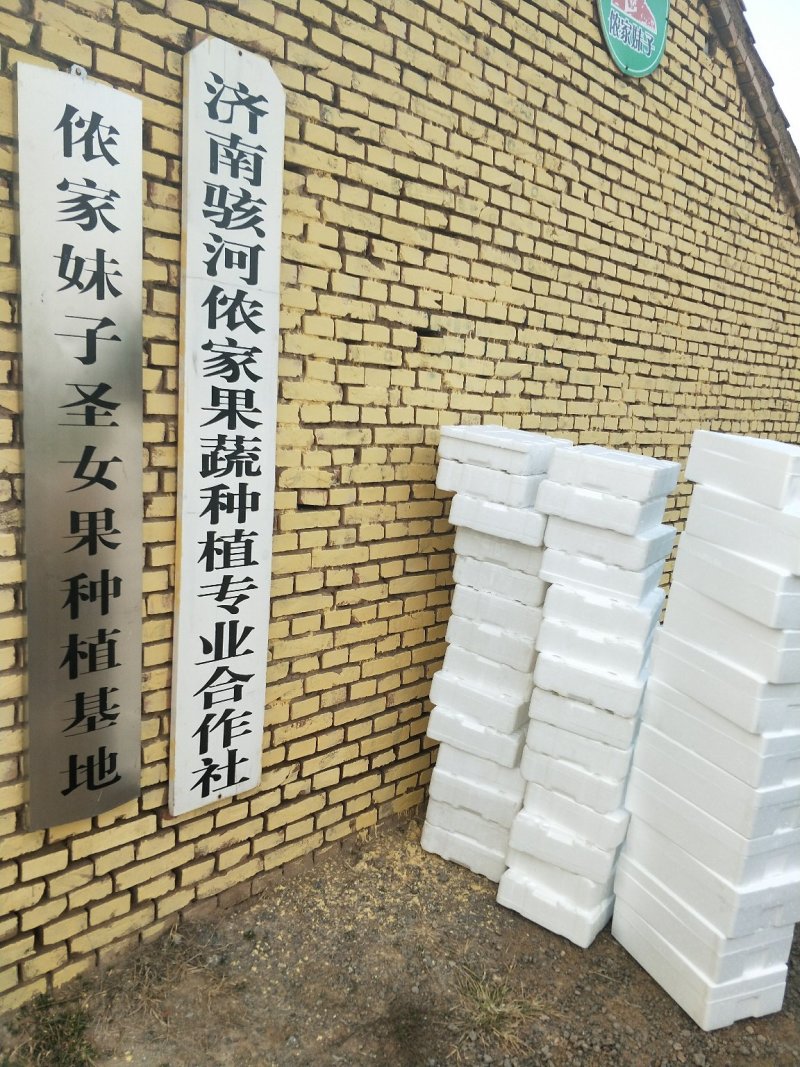 侬家妹子圣女果种植基地
济南骇河侬家果蔬种植专业合作社
侬家妹子